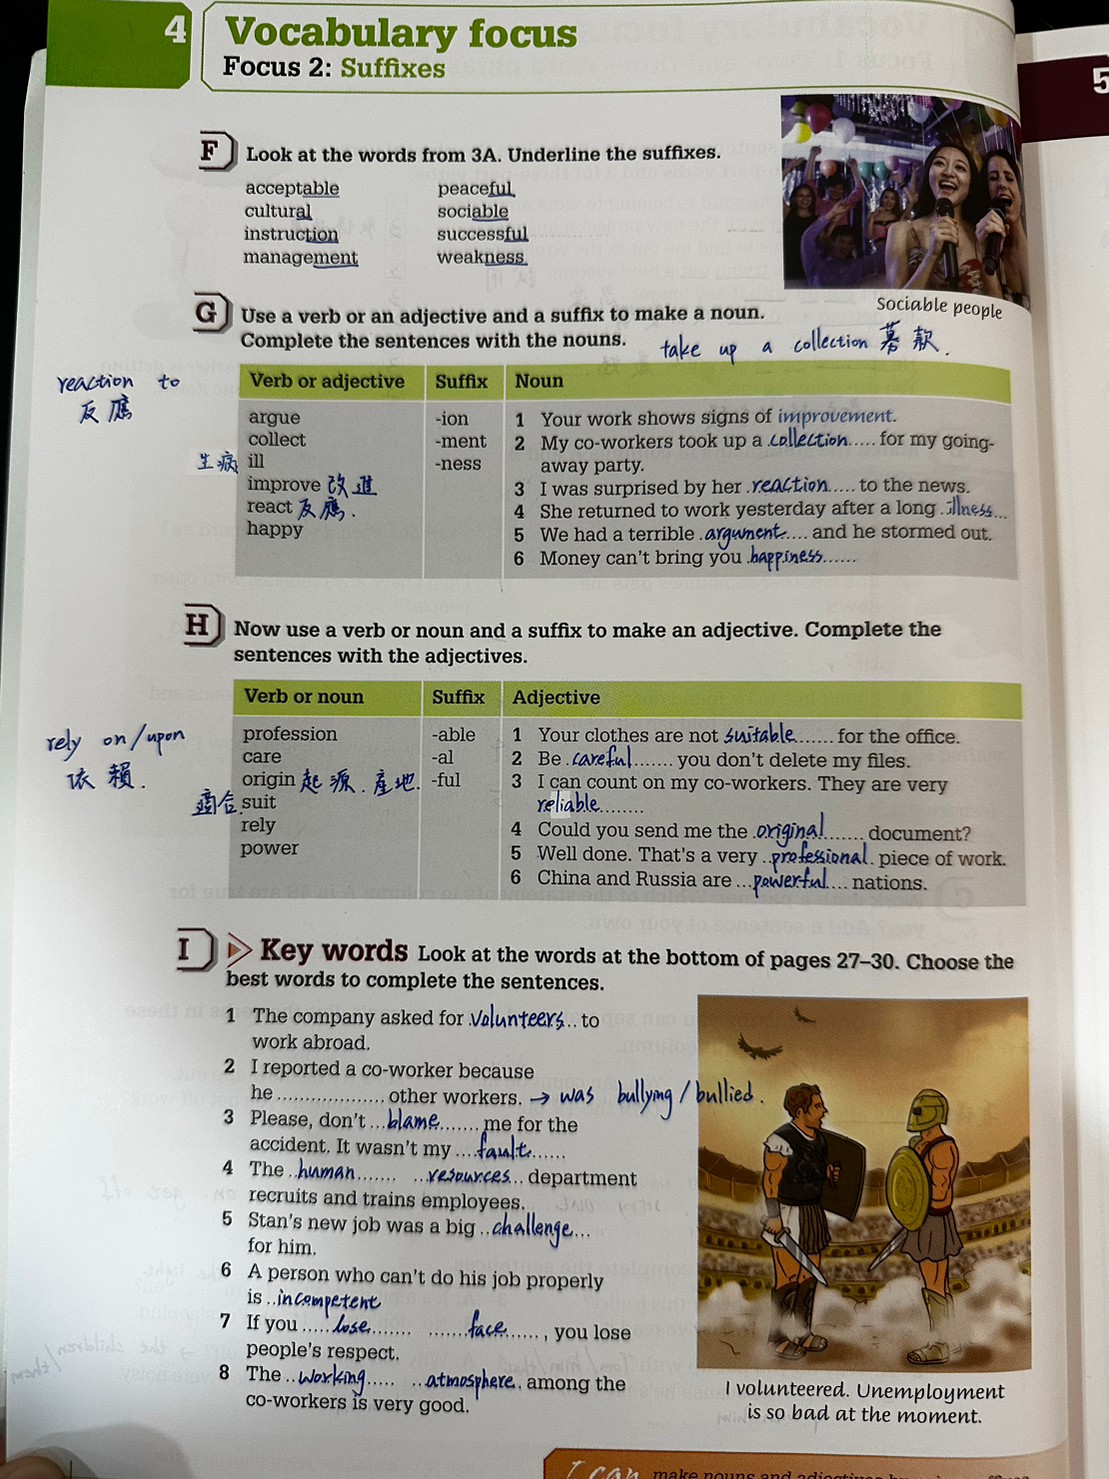 4 Vocabulary focus
Focus 2: Suffixes
5
F Look at the words from 3A. Underline the suffixes.
acceptable peaceful
cultural sociable
instruction successful
management weakness
Sociable people
G Use a verb or an adjective and a suffix to make a noun.
Complete the sentences with the nouns.
take up a collection 募款.
reaction to
反應
Verb or adjective Suffix Noun
argue -ion 1 Your work shows signs of improvement.
collect -ment 2 My co-workers took up a collection..... for my going-
生病 ill -ness away party.
improve 改進 3 I was surprised by her .reaction.... to the news.
react 反應. 4 She returned to work yesterday after a long .illness...
happy 5 We had a terrible .argument.... and he stormed out.
6 Money can't bring you .happiness......
H Now use a verb or noun and a suffix to make an adjective. Complete the
sentences with the adjectives.
rely on/upon
依賴.
Verb or noun Suffix Adjective
profession -able 1 Your clothes are not suitable...... for the office.
care -al 2 Be .careful....... you don't delete my files.
origin 起源. 產地. -ful 3 I can count on my co-workers. They are very
適合. suit reliable........
rely 4 Could you send me the .original....... document?
power 5 Well done. That's a very ..professional. piece of work.
6 China and Russia are ...powerful.... nations.
I Key words Look at the words at the bottom of pages 27–30. Choose the
best words to complete the sentences.
1 The company asked for .volunteers.. to
work abroad.
2 I reported a co-worker because
he ................... other workers. → was bullying / bullied.
3 Please, don't ...blame....... me for the
accident. It wasn't my ....fault......
4 The ..human....... ...resources... department
recruits and trains employees.
5 Stan's new job was a big ..challenge...
for him.
6 A person who can't do his job properly
is ..incompetent
7 If you .....lose....... .......face......, you lose
people's respect.
8 The ..working..... ...atmosphere. among the
co-workers is very good.
I volunteered. Unemployment
is so bad at the moment.
I can make nouns and adjectives